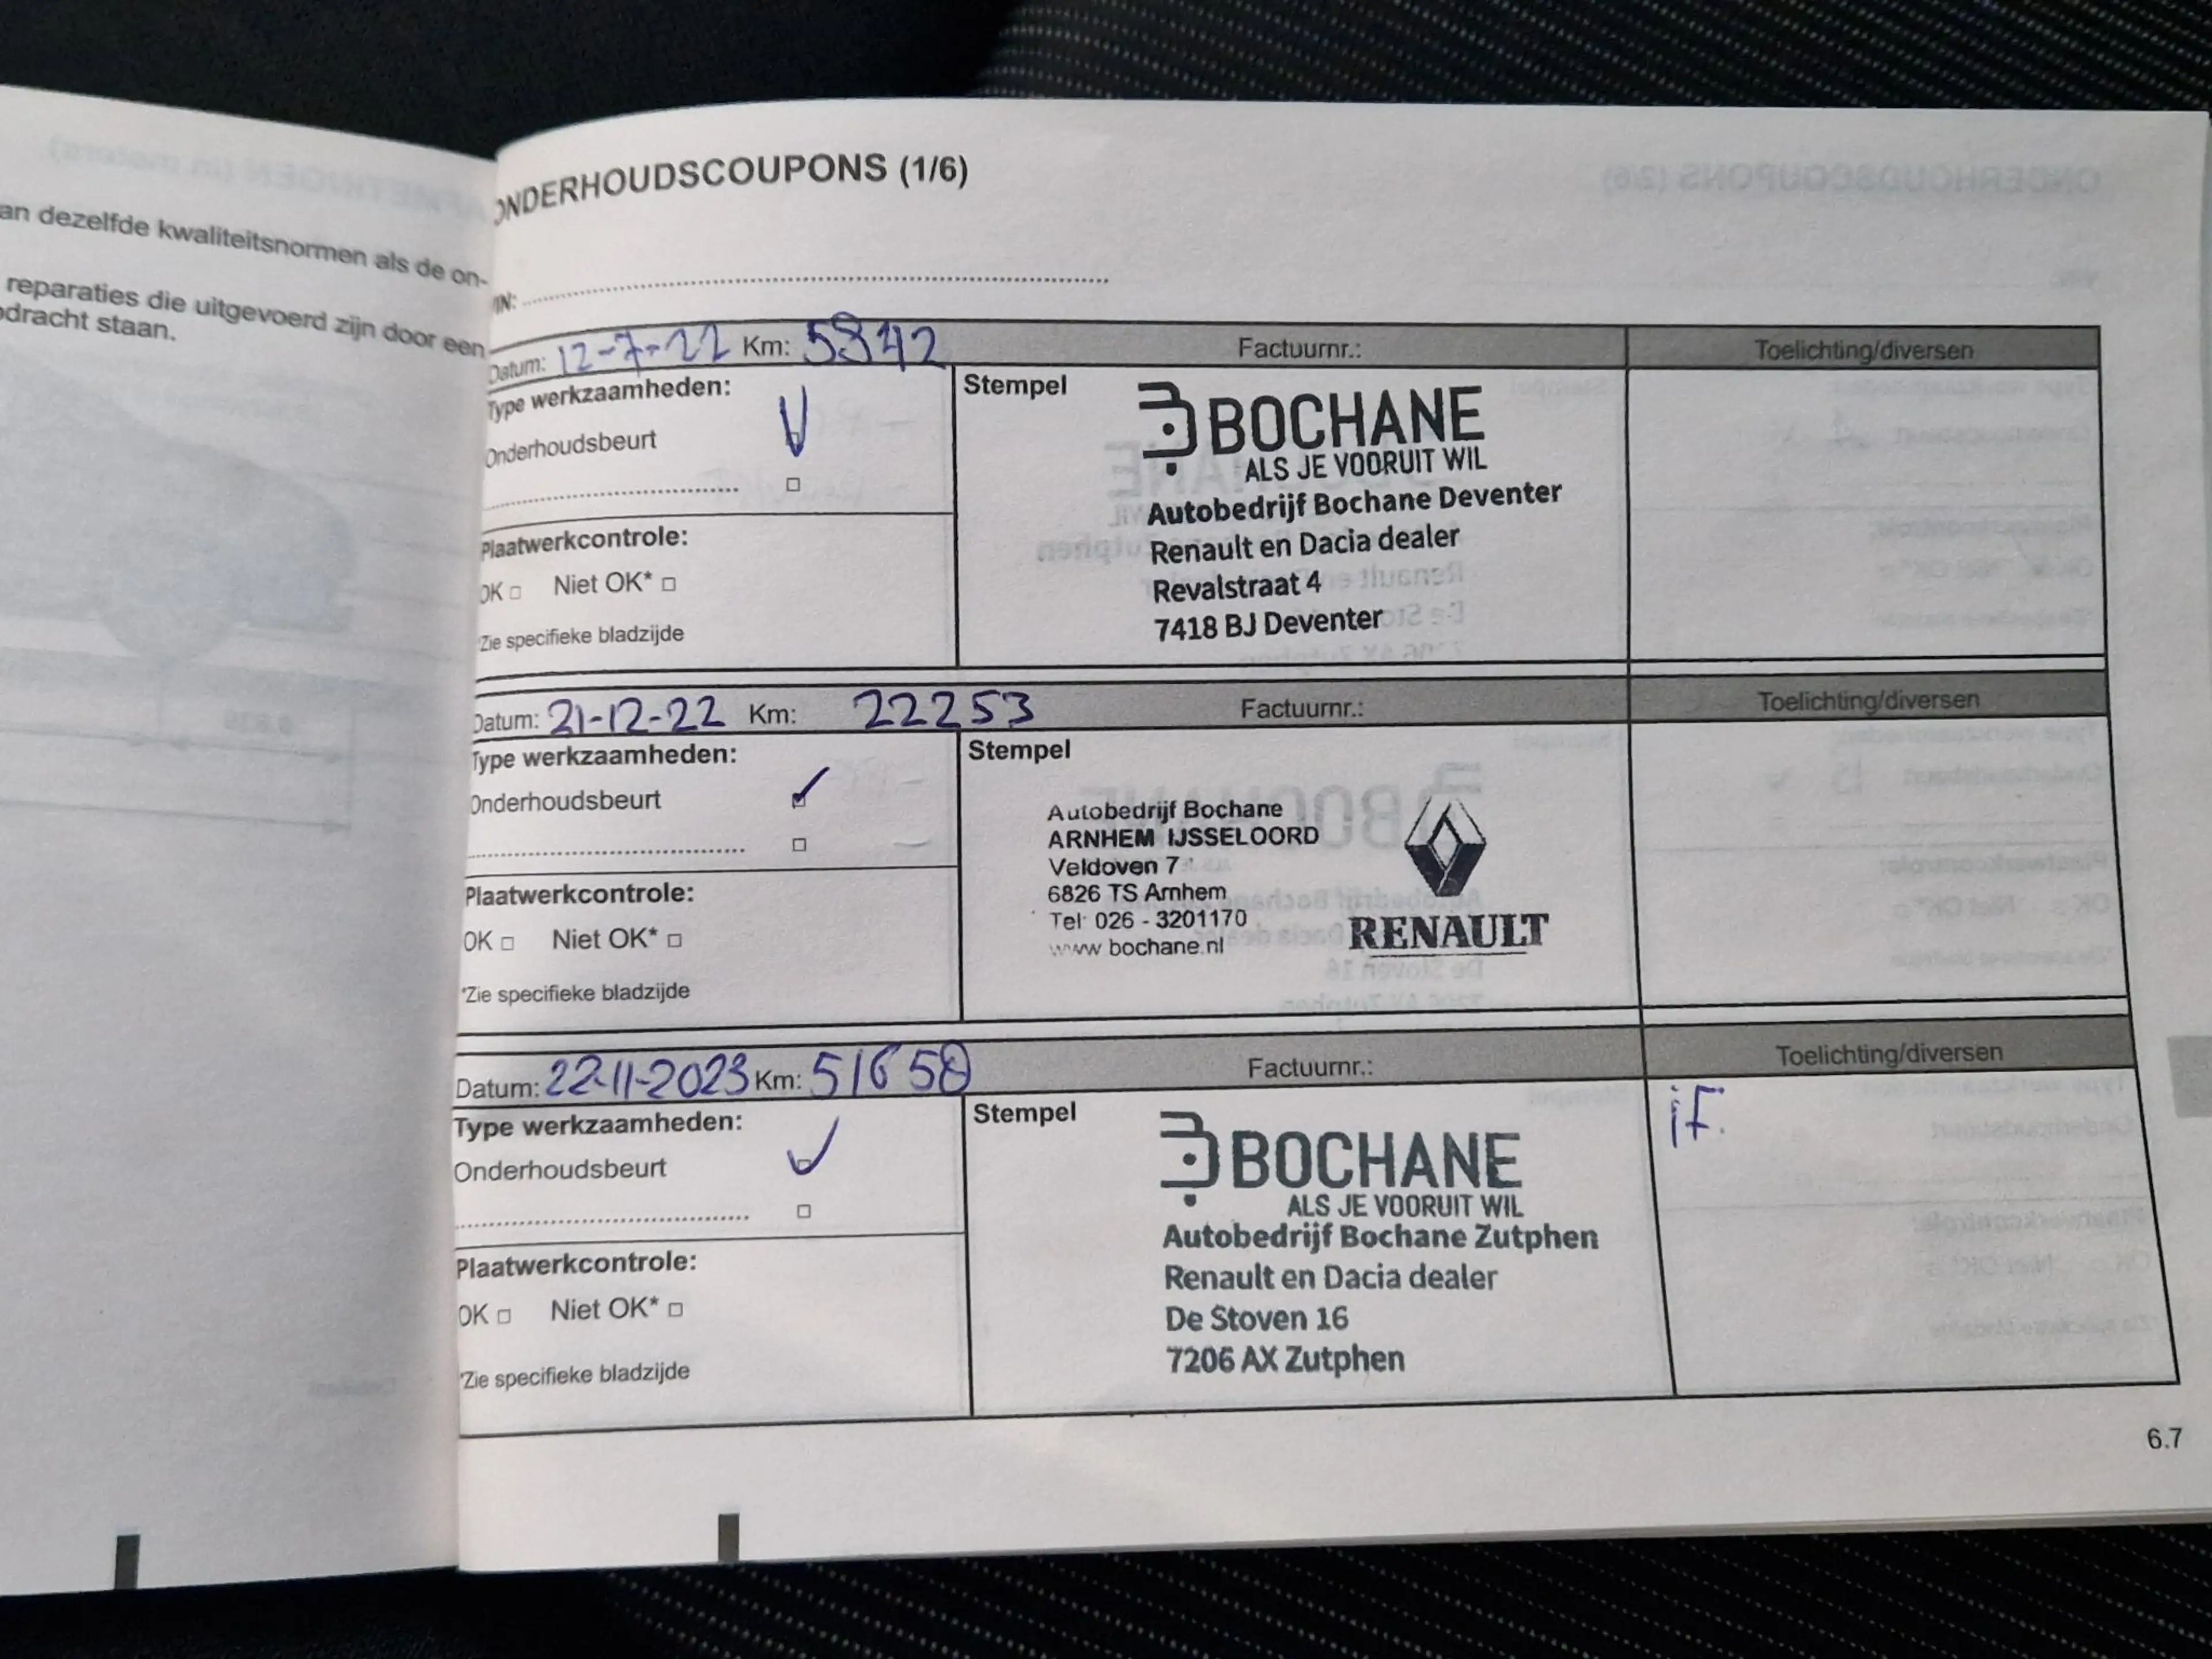 an dezelfde kwaliteitsnormen als de on-
reparaties die uitgevoerd zijn door een
dracht staan.
ONDERHOUDSCOUPONS (1/6)
Datum: 12-7-22 Km: 5842 Factuurnr.: Toelichting/diversen
Type werkzaamheden:
Onderhoudsbeurt
Plaatwerkcontrole:
OK Niet OK*
*Zie specifieke bladzijde
Stempel
BOCHANE
ALS JE VOORUIT WIL
Autobedrijf Bochane Deventer
Renault en Dacia dealer
Revalstraat 4
7418 BJ Deventer
Datum: 21-12-22 Km: 22253 Factuurnr.: Toelichting/diversen
Type werkzaamheden:
Onderhoudsbeurt
Plaatwerkcontrole:
OK Niet OK*
*Zie specifieke bladzijde
Stempel
Autobedrijf Bochane
ARNHEM IJSSELOORD
Veldoven 7
6826 TS Arnhem
Tel: 026 - 3201170
www bochane.nl
RENAULT
Datum: 22-11-2023 Km: 51658 Factuurnr.: Toelichting/diversen
Type werkzaamheden:
Onderhoudsbeurt
Plaatwerkcontrole:
OK Niet OK*
*Zie specifieke bladzijde
Stempel
BOCHANE
ALS JE VOORUIT WIL
Autobedrijf Bochane Zutphen
Renault en Dacia dealer
De Stoven 16
7206 AX Zutphen
6.7